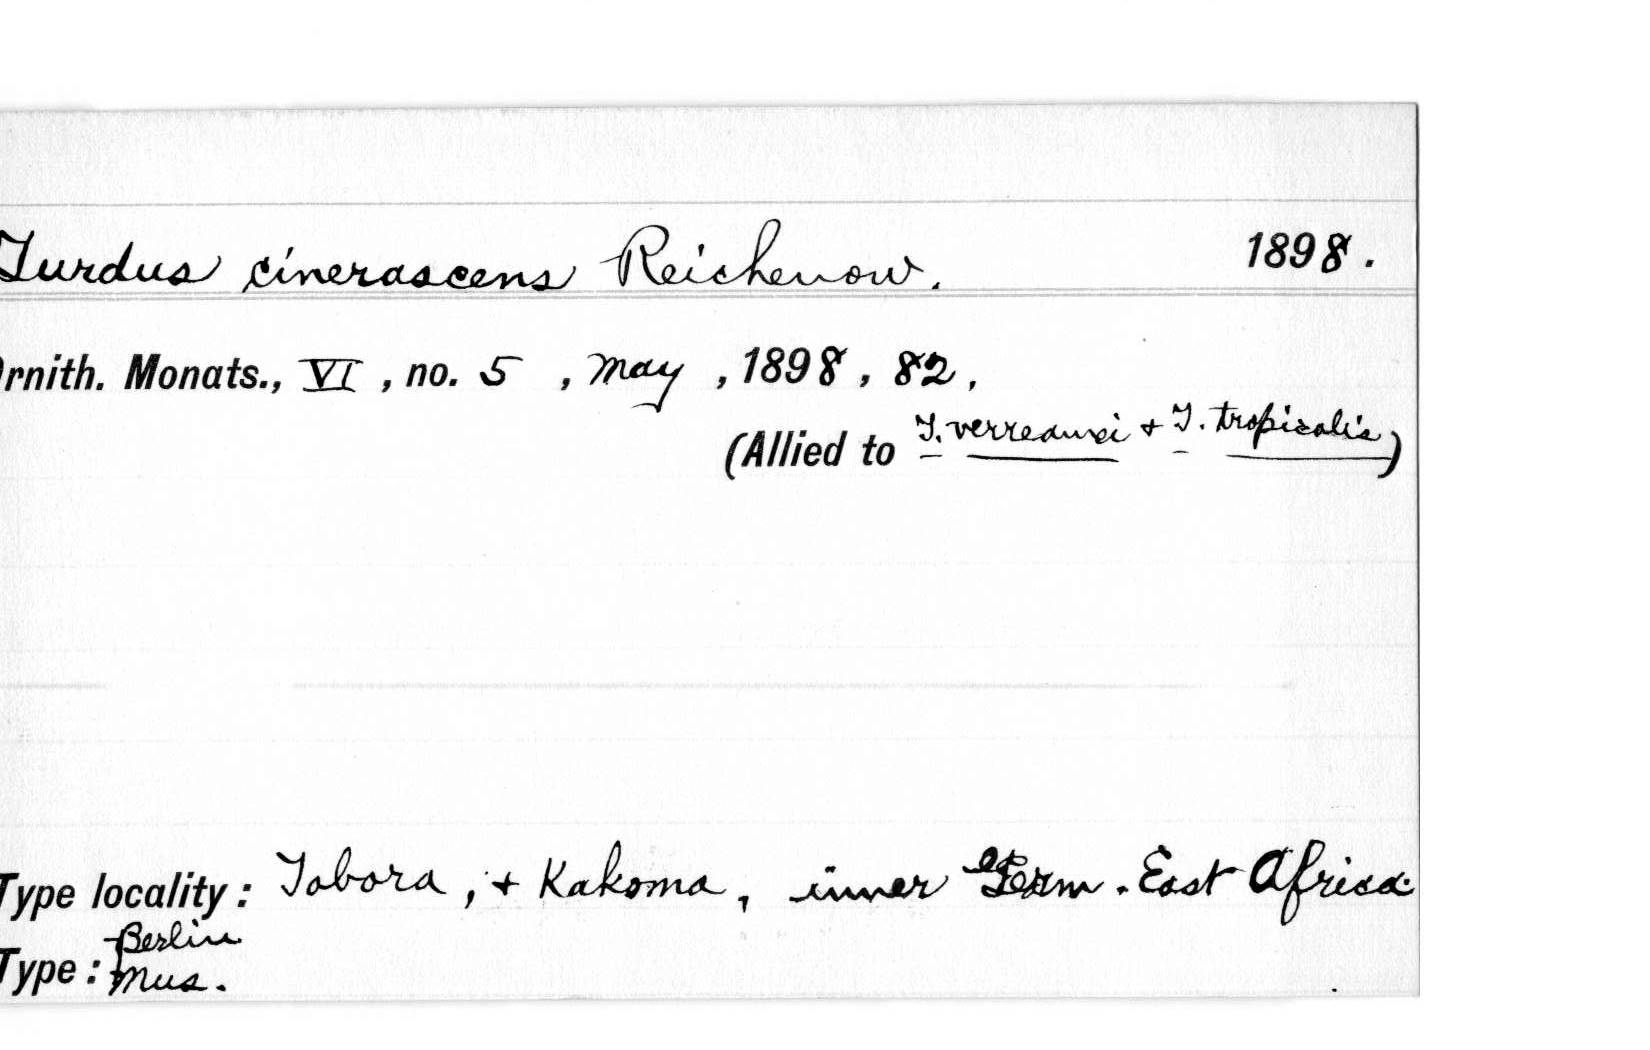 Turdus cinerascens Reichenow. 1898.
Ornith. Monats., VI, no. 5, May, 1898, 82.
(Allied to T. verreauxi + T. tropicalis)
Type locality: Tabora, + Kakoma, inner Germ. East Africa.
Type: Berlin
Mus.